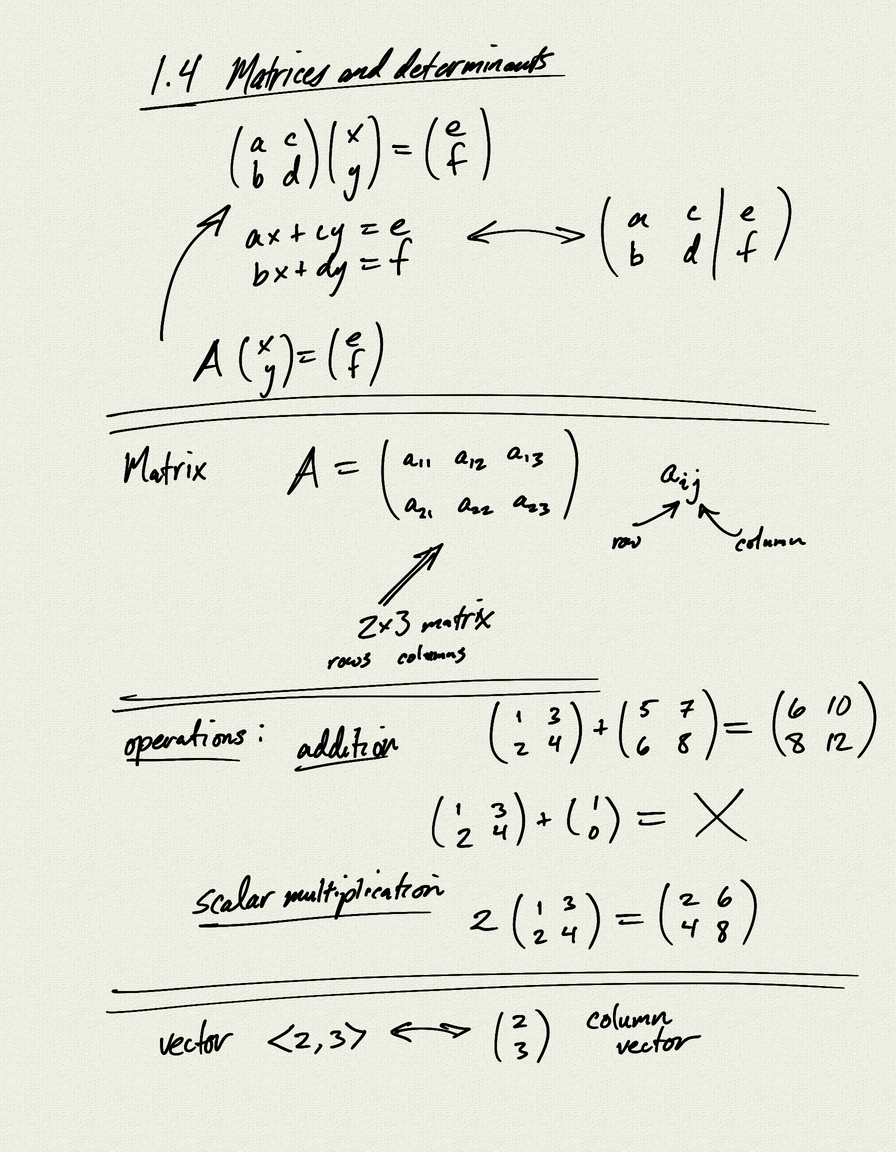 1.4 Matrices and determinants
(a c) (x) = (e)
(b d) (y) (f)
ax + cy = e ⟷ (a c | e)
bx + dy = f (b d | f)
A (x) = (e)
(y) (f)
Matrix A = (a₁₁ a₁₂ a₁₃) aᵢⱼ
(a₂₁ a₂₂ a₂₃)
row column
2×3 matrix
rows columns
operations: addition (1 3) + (5 7) = (6 10)
(2 4) (6 8) (8 12)
(1 3) + (1) = X
(2 4) (0)
scalar multiplication 2 (1 3) = (2 6)
(2 4) (4 8)
vector <2,3> ⟷ (2) column
(3) vector